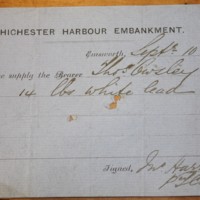 HICHESTER HARBOUR EMBANKMENT.
Emsworth, Septr 10
e supply the Bearer Thos Cribley
14 lbs white lead
Signed, Jno